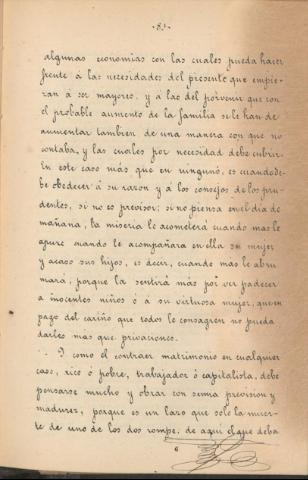 -8.-
algunas economías con las cuales pueda hacer
frente á las necesidades del presente que empie-
zan á ser mayores, y á las del porvenir que con
el probable aumento de la familia se le han de
aumentar tambien de una manera con que no
contaba, y las cuales por necesidad debe cubrir.
En este caso más que en ninguno, es cuando de-
be obedecer á su razon y á los consejos de los pru-
dentes, si no es previsor; si no piensa en el día de
mañana, la miseria le acometerá cuando mas le
apure cuando le acompañara en ella su mujer
y acaso sus hijos, es decir, cuando más le abru
mará; porque la sentirá más por ver padecer
á inocentes niños ó á su virtuosa mujer, que en
pago del cariño que todos le consagren no pueda
darles mas que privaciones.
Y como el contraer matrimonio en cualquier
caso, rico ó pobre, trabajador ó capitalista, debe
pensarse mucho y obrar con suma prevision y
madurez, porque es un lazo que solo la muer-
te de uno de los dos rompe, de aqui el que deba
6